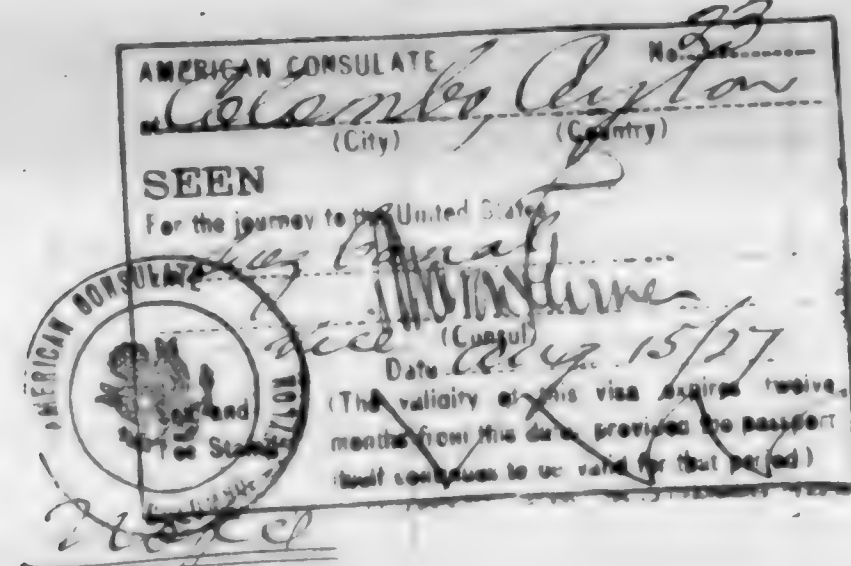 AMERICAN CONSULATE No. 33
at Colombo Ceylon
(City) (Country)
SEEN
For the journey to the United States
Suez Canal
Vice (Consul)
Date Aug 15/27
(The validity of this visa expires twelve
months from this date provided the passport
itself continues to be valid for that period)
AMERICAN CONSULATE
Seal and
Fee Stamp
No fee